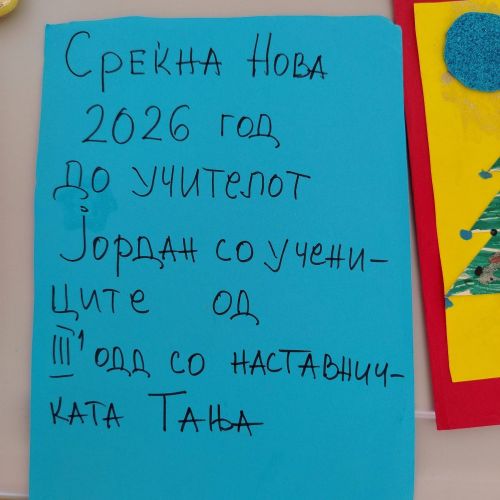 Среќна Нова
2026 год
до учителот
Јордан со учени-
ците од
III¹ одд со наставнич-
ката Тања